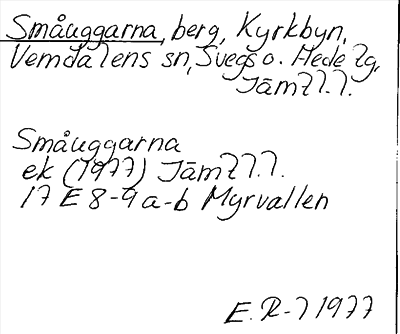 Småuggarna, berg, Kyrkbyn,
Vemdalens sn, Svegs o. Hede tg,
Jämtl.l.
Småuggarna
ek (1977) Jämtl.l.
17 E 8-9 a-b Myrvallen
E. R-l 1977